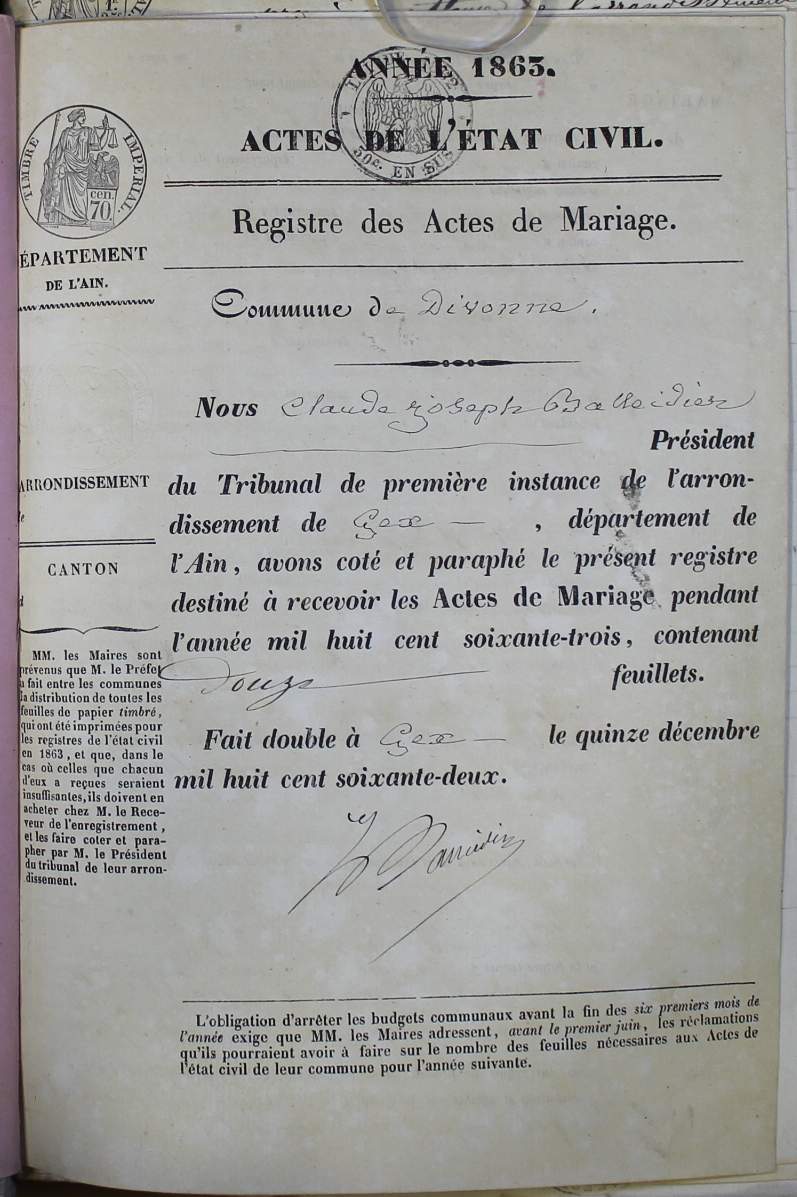 ANNÉE 1863.
50c. EN SUS
ACTES DE L'ÉTAT CIVIL.
TIMBRE IMPERIAL.
cen.
70
Registre des Actes de Mariage.
ÉPARTEMENT
DE L'AIN.
Commune de Divonne.
Nous Claude Joseph Balleidier
Président
ARRONDISSEMENT
du Tribunal de première instance de l'arron-
dissement de Gex — , département de
CANTON
l'Ain, avons coté et paraphé le présent registre
destiné à recevoir les Actes de Mariage pendant
l'année mil huit cent soixante-trois, contenant
Douze feuillets.
Fait double à Gex — le quinze décembre
mil huit cent soixante-deux.
MM. les Maires sont
prévenus que M. le Préfet
a fait entre les communes
la distribution de toutes les
feuilles de papier timbré,
qui ont été imprimées pour
les registres de l'état civil
en 1863, et que, dans le
cas où celles que chacun
d'eux a reçues seraient
insuffisantes, ils doivent en
acheter chez M. le Rece-
veur de l'enregistrement,
et les faire coter et para-
pher par M. le Président
du tribunal de leur arron-
dissement.
L'obligation d'arrêter les budgets communaux avant la fin des six premiers mois de
l'année exige que MM. les Maires adressent, avant le premier juin, les réclamations
qu'ils pourraient avoir à faire sur le nombre des feuilles nécessaires aux Actes de
l'état civil de leur commune pour l'année suivante.